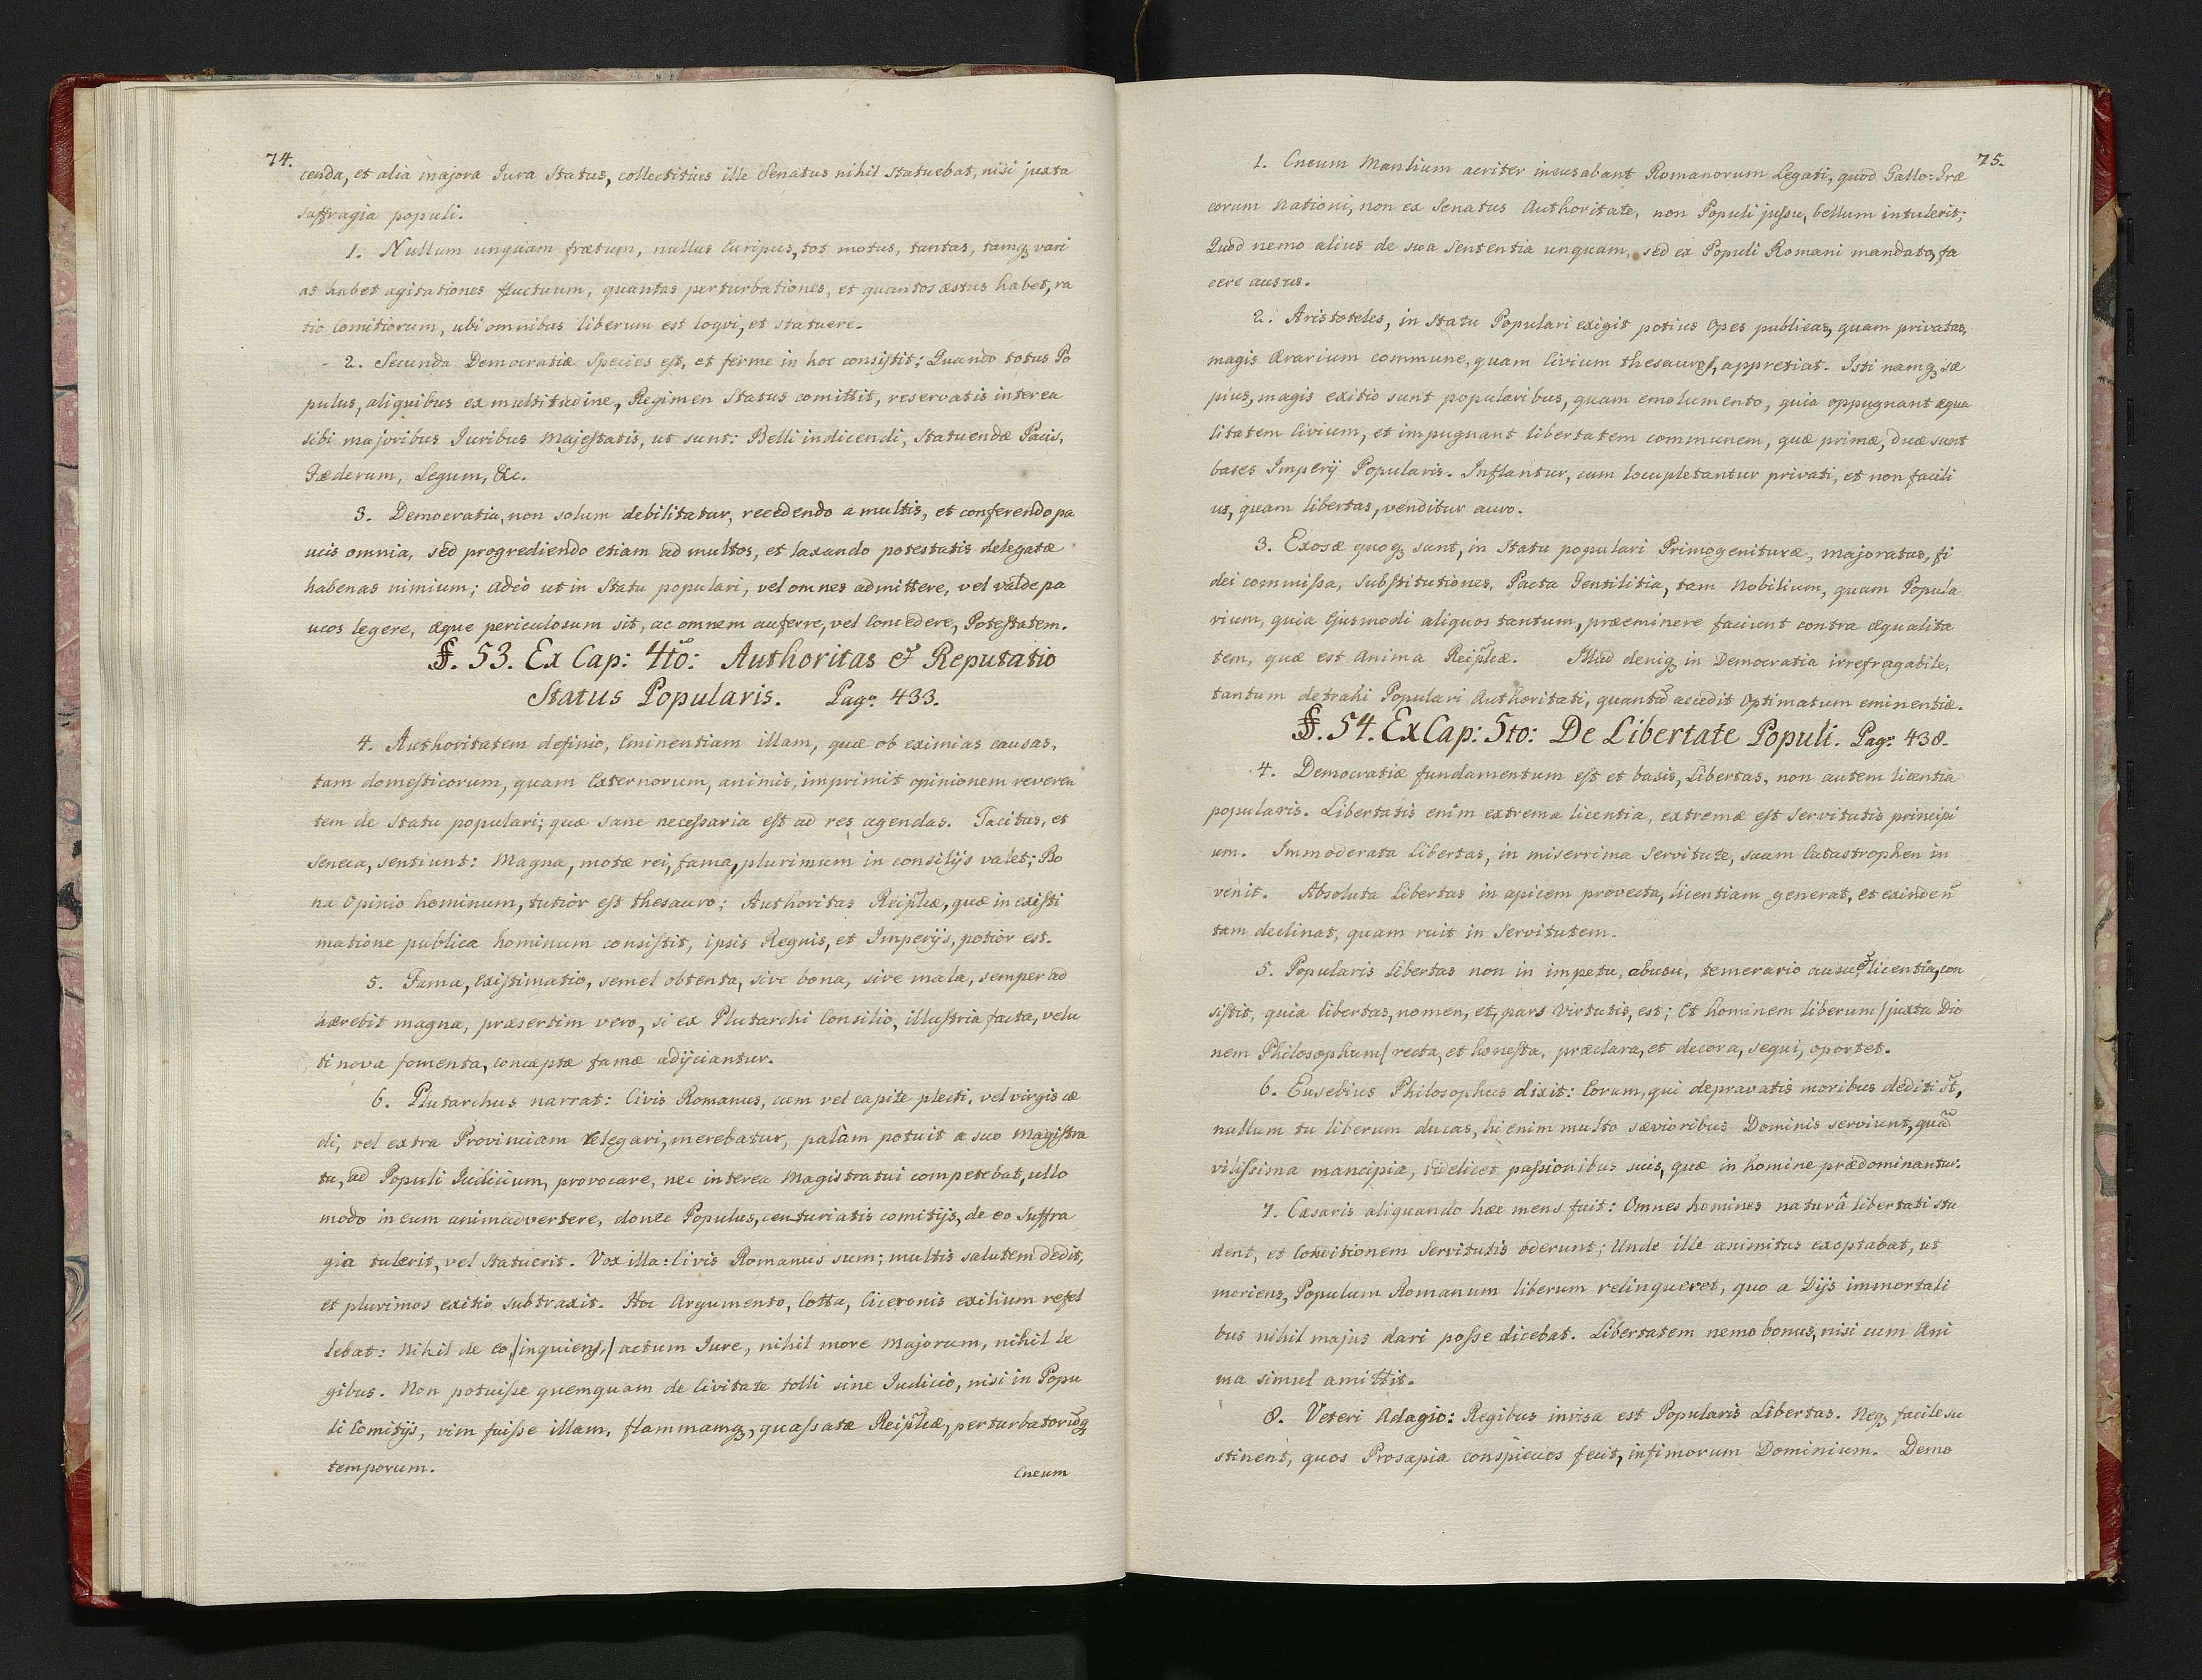 74.
cenda, et alia majora Jura Status, collectitius ille Senatus nihil statuebat, nisi juxta
suffragia populi.
1. Nullum unquam frætum, nullus Euripus, tot motus, tantas, tamq₃ vari
as habet agitationes fluctuum, quantas perturbationes, et quantos æstus habet, ra
tio Comitiorum, ubi omnibus liberum est loqvi, et statuere.
2. Secunda Democratiæ Species est, et ferme in hoc consistit; Quando totus Po
pulus, aliquibus ex multitudine, Regimen Status comittit, reservatis interea
sibi majoribus Juribus Majestatis, ut sunt: Belli indicendi, Statuendæ Pacis,
Fæderum, Legum, &c.
3. Democratia, non solum debilitatur, recedendo a multis, et conferendo pa
ucis omnia, sed progrediendo etiam ad multos, et laxando potestatis delegatæ
habenas nimium; adeo ut in Statu populari, vel omnes admittere, vel valde pa
ucos legere, æque periculosum sit, ac omnem auferre, vel Concedere, Potestatem.
§. 53. Ex Cap: 4to: Authoritas & Reputatio
Status Popularis. Pag: 433.
4. Authoritatem definio, Eminentiam illam, quæ ob eximias causas,
tam domesticorum, quam Externorum, animis, imprimit opinionem reveren
tem de Statu populari; quæ sane necessaria est ad res agendas. Tacitus, et
Seneca, sentiunt: Magna, motæ rei, fama, plurimum in consilijs valet; Bo
na Opinio hominum, tutior est thesauro; Authoritas Reipłicæ, quæ in existi
matione publica hominum consistit, ipsis Regnis, et Imperijs, potior est.
5. Fama, Existimatio, semel obtenta, sive bona, sive mala, semper ad
hærebit magna, præsertim vero, si ex Plutarchi Consilio, illustria facta, velu
ti nova fomenta, conceptæ famæ adijciantur.
6. Plutarchus narrat: Civis Romanus, cum vel capite plecti, vel virgis cæ
di, vel extra Provinciam relegari, merebatur, palàm potuit a suo Magistra
tu, ad Populi Iudicium, provocare, nec interea Magistratui competebat, ullo
modo in eum animadvertere, donec Populus, centuriatis comitijs, de eo Suffra
gia tulerit, vel Statuerit. Vox illa: Civis Romanus sum; multis salutem dedit,
et plurimos exitio subtraxit. Hoc Argumento, Cotta, Ciceronis exilium refel
lebat: Nihil de eo, /inquiens,/ actum Iure, nihil more Majorum, nihil le
gibus. Non potuisse quemquam de Civitate tolli sine Iudicio, nisi in Popu
li Comitijs, vim fuisse illam, flammamq₃, quassatæ Reipłicæ, perturbatorũq₃
temporum.
Cneum
75.
1. Cneum Manlium acriter incusabant Romanorum Legati, quod Gallo-Græ
corum Nationi, non ex Senatus Authoritate, non Populi jussu, bellum intulerit;
Quod nemo alius de sua Sententia unquam, sed ex Populi Romani mandato, fa
cere ausus.
2. Aristoteles, in Statu Populari exigit potius Opes publicas, quam privatas,
magis Ærarium commune, quam Civium thesauros, appretiat. Isti namq₃ sæ
pius, magis exitio sunt popularibus, quam emolumento, quia oppugnant æqua
litatem Civium, et impugnant libertatem communem, quæ primæ, duæ sunt
bases Imperij Popularis. Inflantur, cum locupletantur privati, et non facili
us, quam libertas, venditur auro.
3. Exosæ quoq₃ sunt, in Statu populari Primogenituræ, majoratus, fi
dei commissa, Substitutiones, Pacta Gentilitia, tam Nobilium, quam Popula
rium, quia Ejusmodi aliquos tantum, præeminere faciunt contra æqualita
tem, quæ est Anima Reipłicæ. Illud deniq₃ in Democratia irrefragabile,
tantum detrahi Populari Authoritati, quantũ accedit Optimatum eminentiæ.
§. 54. Ex Cap: 5to: De Libertate Populi. Pag: 438.
4. Democratiæ fundamentum est et basis, Libertas, non autem licentia
popularis. Libertatis enim extrema licentia, extremæ est Servitutis principi
um. Immoderata Libertas, in miserrima Servitute, suam Catastrophen in
venit. Absoluta Libertas in apicem provecta, licentiam generat, et exinde ñ
tam declinat, quam ruit in Servitutem.
5. Popularis Libertas non in impetu, abusu, temerario ausu, & licentia, con
sistit, quia libertas, nomen, et, pars Virtutis, est; Et hominem liberum /juxta Dio
nem Philosophum/ recta, et honesta, præclara, et decora, sequi, oportet.
6. Eusebius Philosophus dixit: Eorum, qui depravatis moribus dediti s̃t,
nullum tu liberum ducas, hi enim multo sævioribus Dominis serviunt, quã
vilissima mancipia, videlicet passionibus suis, quæ in homine prædominantur.
7. Cæsaris aliquando hæc mens fuit: Omnes homines naturâ libertati stu
dent, et Conditionem Servitutis oderunt; Unde ille animitus exoptabat, ut
moriens, Populum Romanum liberum relinqueret, quo a Dijs immortali
bus nihil majus dari posse dicebat. Libertatem nemo bonus, nisi cum Ani
ma simul amittit.
8. Veteri Adagio: Regibus invisa est Popularis Libertas. Neq₃ facile su
stinent, quos Prosapia conspicuos fecit, infimorum Dominium. Demo